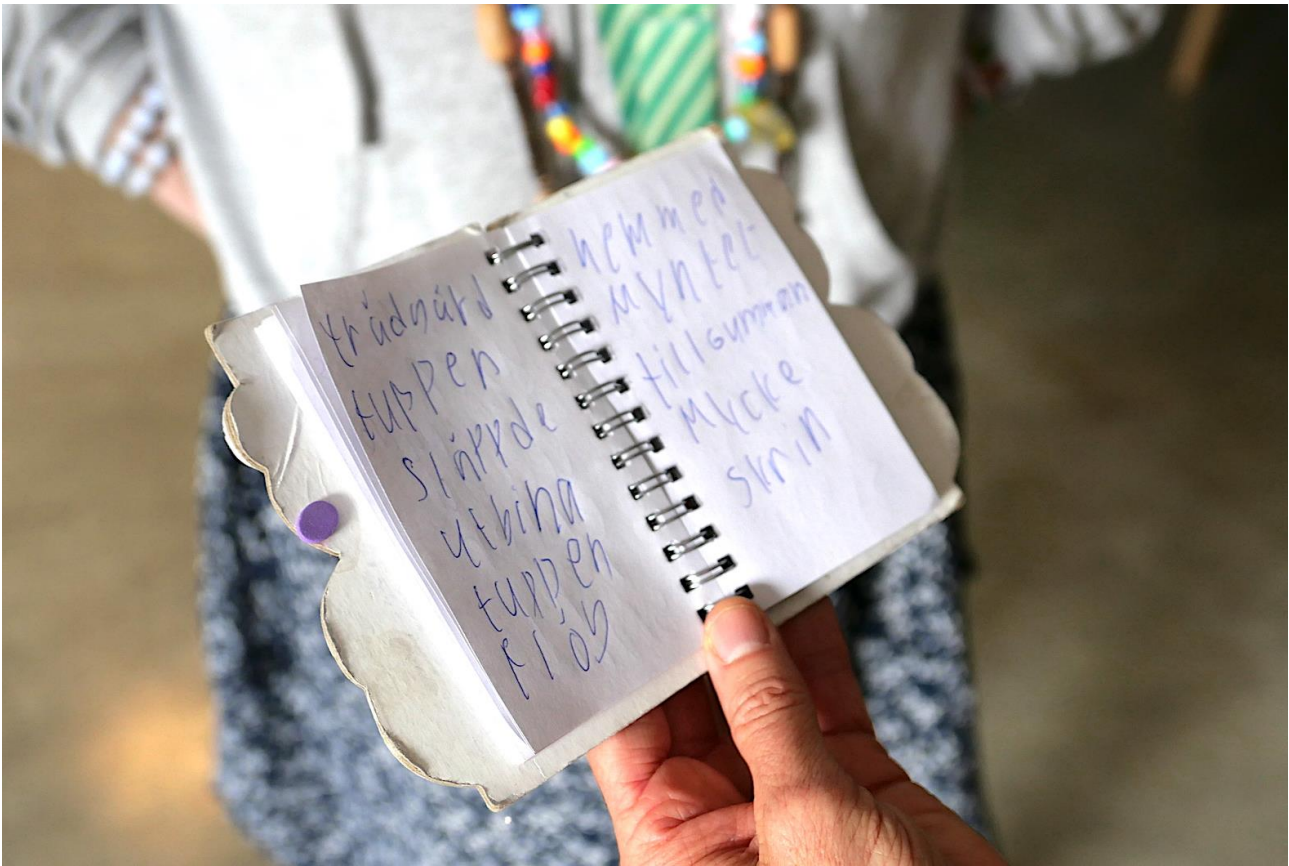 trädgård
tuppen
släppde
utbina
tuppen
flög
hemmed
myntet
tillgumman
mycke
skrin